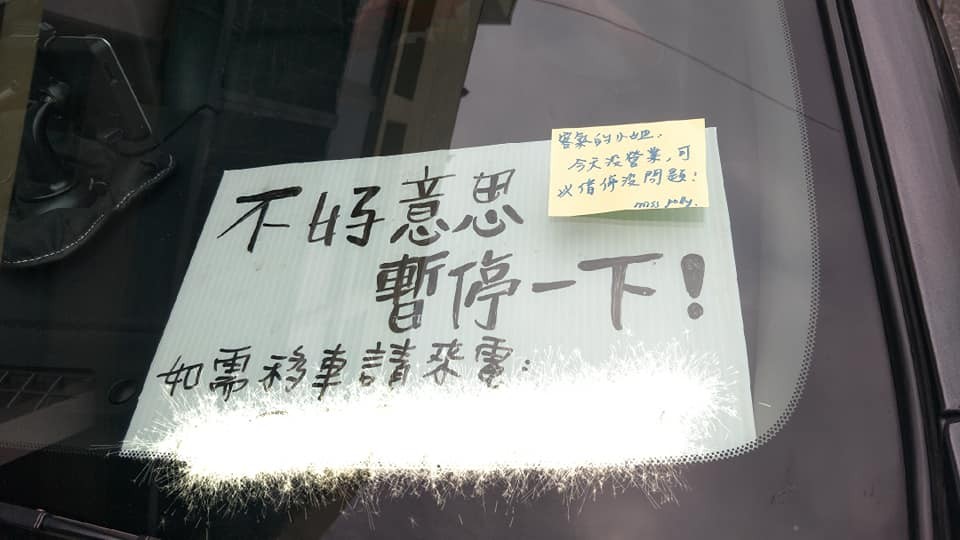 不好意思
暫停一下!
如需移車請來電:
客氣的小姐,
今天沒營業,可
以借停沒問題!
miss